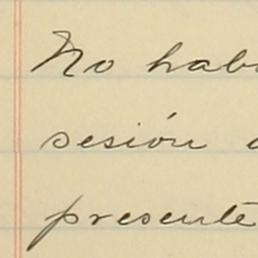 No hab
sesión
presente